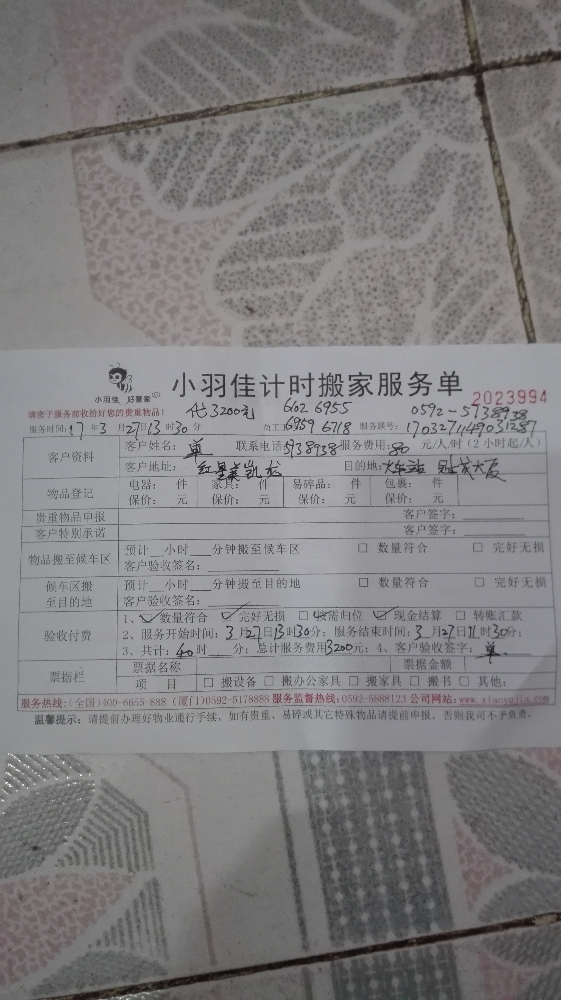 小羽佳 好管家
小羽佳计时搬家服务单
2023994
请您于服务前收拾好您的贵重物品!
3200元 6102 6955 0592-5738938
服务时间:17年3月27日13时30分 员工 6959 6718 服务联号:
客户资料 客户姓名:单 联系电话:5738938 服务费用:80 元/人/时(2小时起/人)
客户地址:红星美凯龙 目的地:火车站
物品登记 电器: 件 家具: 件 易碎品: 件 包裹: 件
保价: 元 保价: 元 保价: 元 保价: 元
贵重物品申报 客户签字:
客户特别承诺 客户签字:
物品搬至候车区 预计__小时___分钟搬至候车区 □ 数量符合 □ 完好无损
客户验收签名:
候车区搬至目的地 预计__小时___分钟搬至目的地 □ 数量符合 □ 完好无损
客户验收签名:
验收付费 1、☑数量符合 ☑完好无损 □按需归位 ☑现金结算 □转账汇款
2、服务开始时间:3月27日13时30分; 服务结束时间:3月27日 时30分;
3、共计:40时___分; 总计服务费用3200元; 4、客户验收签字:单
票据栏 票据名称 票据金额
项 目 □搬设备 □搬办公家具 □搬家具 □搬书 □其他:
服务热线:(全国)400-6655-888 (厦门)0592-5178888 服务监督热线:0592-5888123 公司网站:www.xiaoyujia.com
温馨提示:请提前办理好物业通行手续,如有贵重、易碎或其它特殊物品请提前申报,否则我司不予负责。